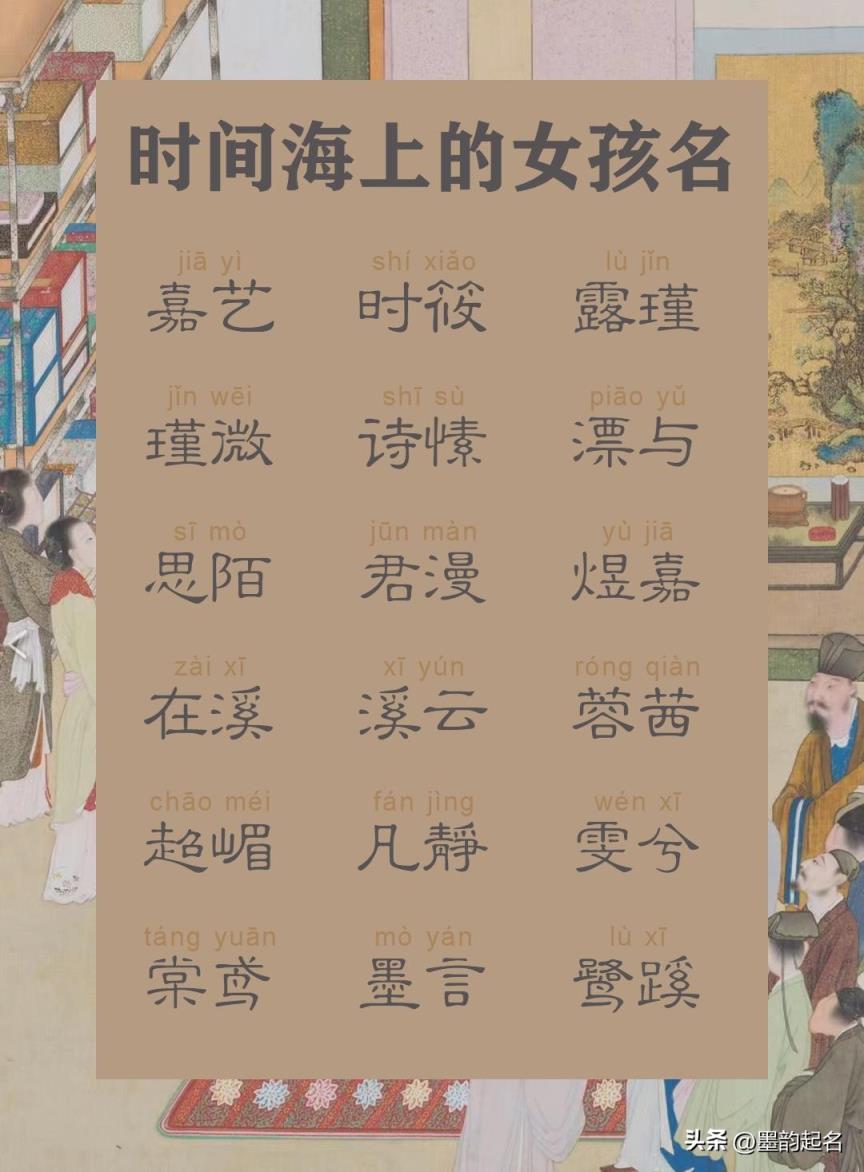 时间海上的女孩名
jiā yì shí xiǎo lù jǐn
嘉艺 时筱 露瑾
jǐn wēi shī sù piāo yǔ
瑾微 诗愫 漂与
sī mò jūn màn yù jiā
思陌 君漫 煜嘉
zài xī xī yún róng qiàn
在溪 溪云 蓉茜
chāo méi fán jìng wén xī
超嵋 凡靜 雯兮
táng yuān mò yán lù xī
棠鸢 墨言 鹭蹊
头条 @墨韵起名